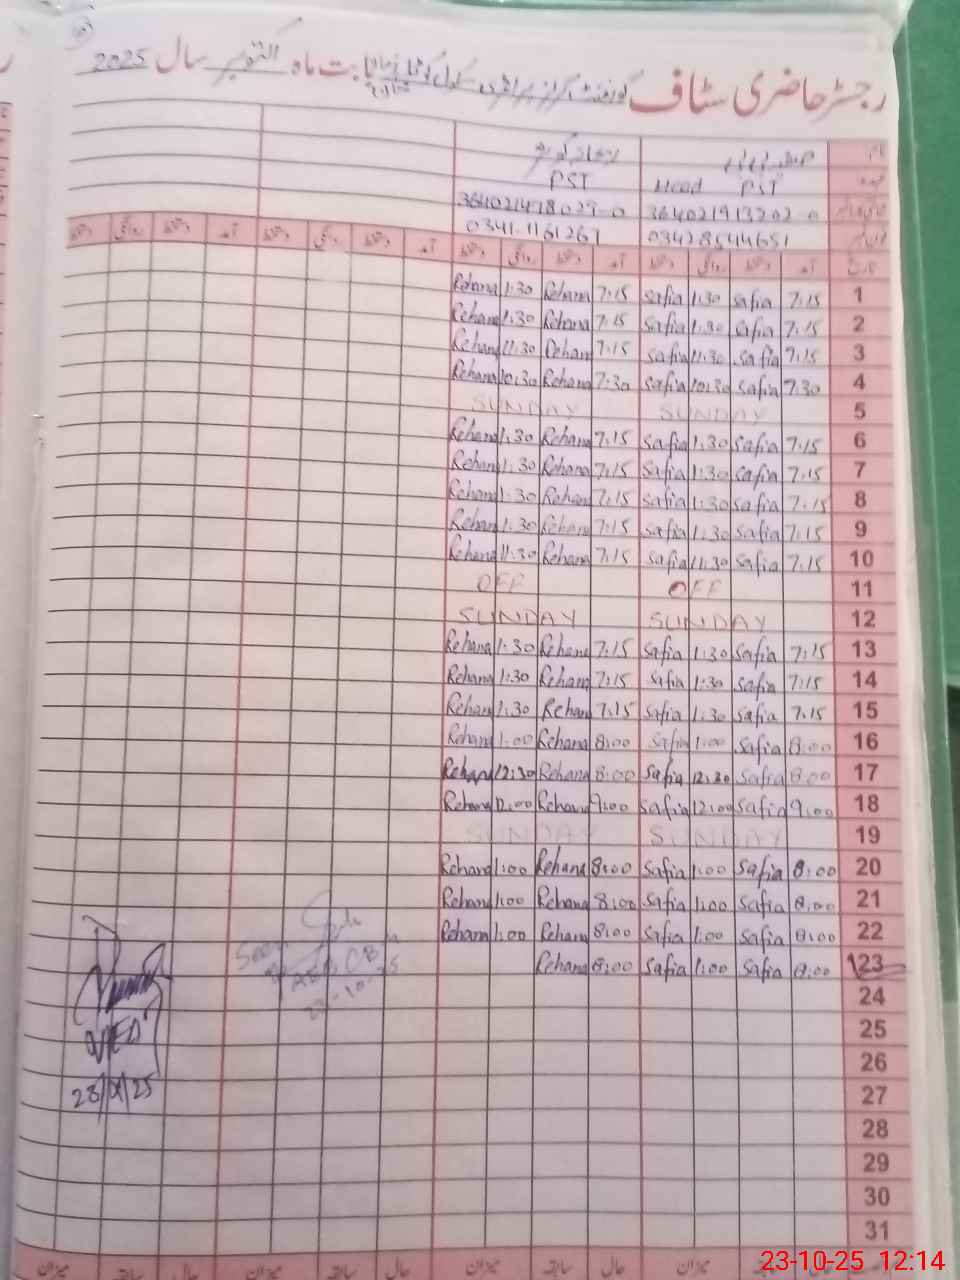 رجسٹر حاضری سٹاف گورنمنٹ گرلز پرائمری سکول بابت ماہ اکتوبر سال 2025
نام
PST Head PST
36402-1913202-0 36402-1418029-0
03428544651 0341-1161261
تاریخ آمد دستخط روانگی دستخط آمد دستخط روانگی دستخط آمد دستخط روانگی دستخط آمد دستخط روانگی دستخط
1 7:15 Safia 1:30 Safia 7:15 Rehana 1:30 Rehana
2 7:15 Safia 1:30 Safia 7:15 Rehana 1:30 Rehana
3 7:15 Safia 11:30 Safia 7:15 Rehana 11:30 Rehana
4 7:30 Safia 10:30 Safia 7:30 Rehana 10:30 Rehana
5 SUNDAY SUNDAY
6 7:15 Safia 1:30 Safia 7:15 Rehana 1:30 Rehana
7 7:15 Safia 1:30 Safia 7:15 Rehana 1:30 Rehana
8 7:15 Safia 1:30 Safia 7:15 Rehana 1:30 Rehana
9 7:15 Safia 1:30 Safia 7:15 Rehana 1:30 Rehana
10 7:15 Safia 11:30 Safia 7:15 Rehana 11:30 Rehana
11 OFF OFF
12 SUNDAY SUNDAY
13 7:15 Safia 1:30 Safia 7:15 Rehana 1:30 Rehana
14 7:15 Safia 1:30 Safia 7:15 Rehana 1:30 Rehana
15 7:15 Safia 1:30 Safia 7:15 Rehana 1:30 Rehana
16 8:00 Safia 1:00 Safia 8:00 Rehana 1:00 Rehana
17 8:00 Safia 12:30 Safia 8:00 Rehana 12:30 Rehana
18 9:00 Safia 12:00 Safia 9:00 Rehana 12:00 Rehana
19 SUNDAY SUNDAY
20 8:00 Safia 1:00 Safia 8:00 Rehana 1:00 Rehana
21 8:00 Safia 1:00 Safia 8:00 Rehana 1:00 Rehana
22 8:00 Safia 1:00 Safia 8:00 Rehana 1:00 Rehana
23 8:00 Safia 1:00 Safia 8:00 Rehana
24
25
26
27
28
29
30
31
Seen
میزان سابقہ حال میزان سابقہ حال میزان سابقہ حال میزان
23-10-25 12:14